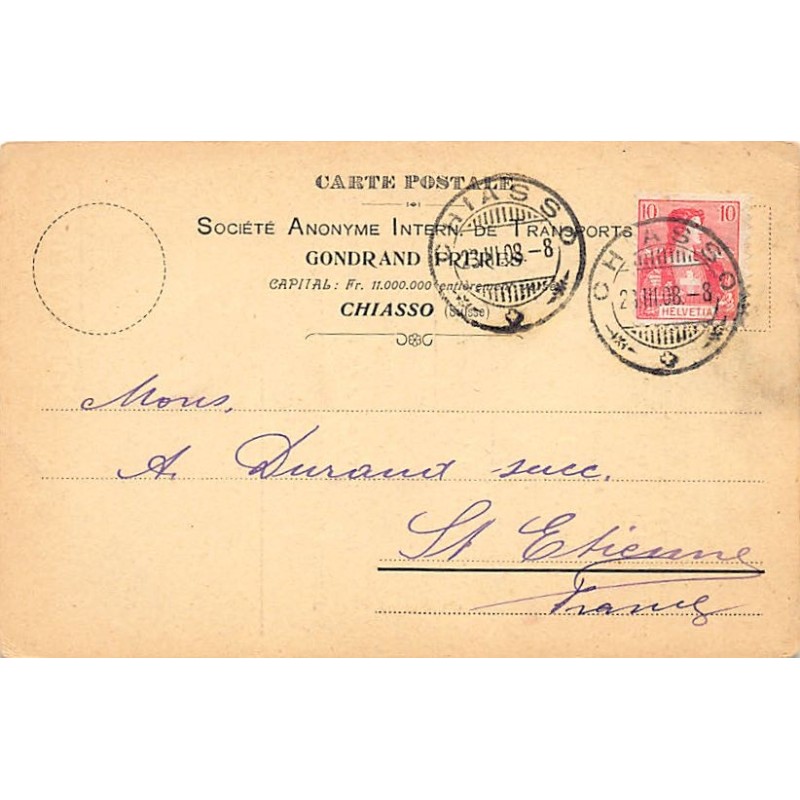 CARTE POSTALE
SOCIÉTÉ ANONYME INTERN. DE TRANSPORTS
GONDRAND FRÈRES
CAPITAL: Fr. 11.000.000 entièrement
CHIASSO (Suisse)
CHIASSO
23.III.08.-8
10 10
HELVETIA
CHIASSO
23.III.08.-8
Mons,
A. Durand succ.
St Etienne
France